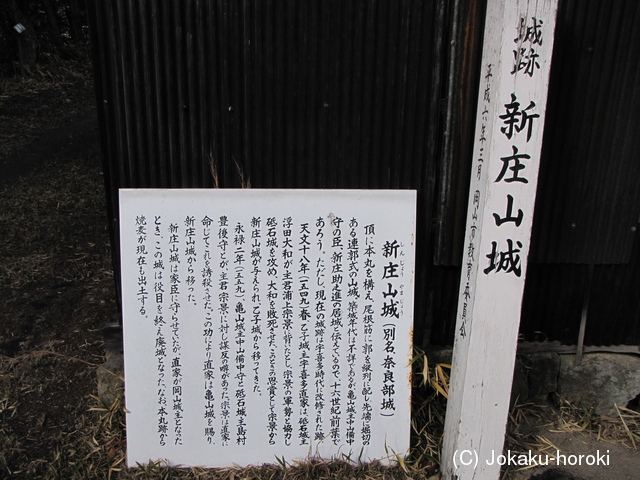 新庄山城（別名・奈良部城）
しんじょう やま じょう
頂に本丸を構え、尾根筋に郭を級列に配し、先端に堀切の
ある連郭式の山城。築城年代は不詳であるが、亀山城主中山備中
守の臣、新庄助之進の居城と伝えているので、十六世紀前葉で
あろう。ただし、現在の城跡は宇喜多時代に改修された跡
天文十八年（一五四九）春、乙子城主宇喜多直家は、砥石城主
浮田大和が主君浦上宗景に背いたとし、宗景の軍勢と協力し
砥石城を攻め、大和を敗死させた。このときの恩賞として宗景から
新庄山城が与えられ、乙子城から移ってきた。
永禄二年（一五五九）亀山城主中山備中守と砥石城主島村
豊後守とが、主君宗景に対し謀反の噂があった。宗景は直家に
命じてこれを誘殺させた。この功により直家は亀山城を賜り、
新庄山城から移った。
新庄山城は家臣に守らせていたが、直家が岡山城主となった
とき、この城は役目を終え廃城となった。なお、本丸跡から
焼麦が現在も出土する。
城跡 新庄山城
平成六年三月 岡山市教育委員会
(C) Jokaku-horoki